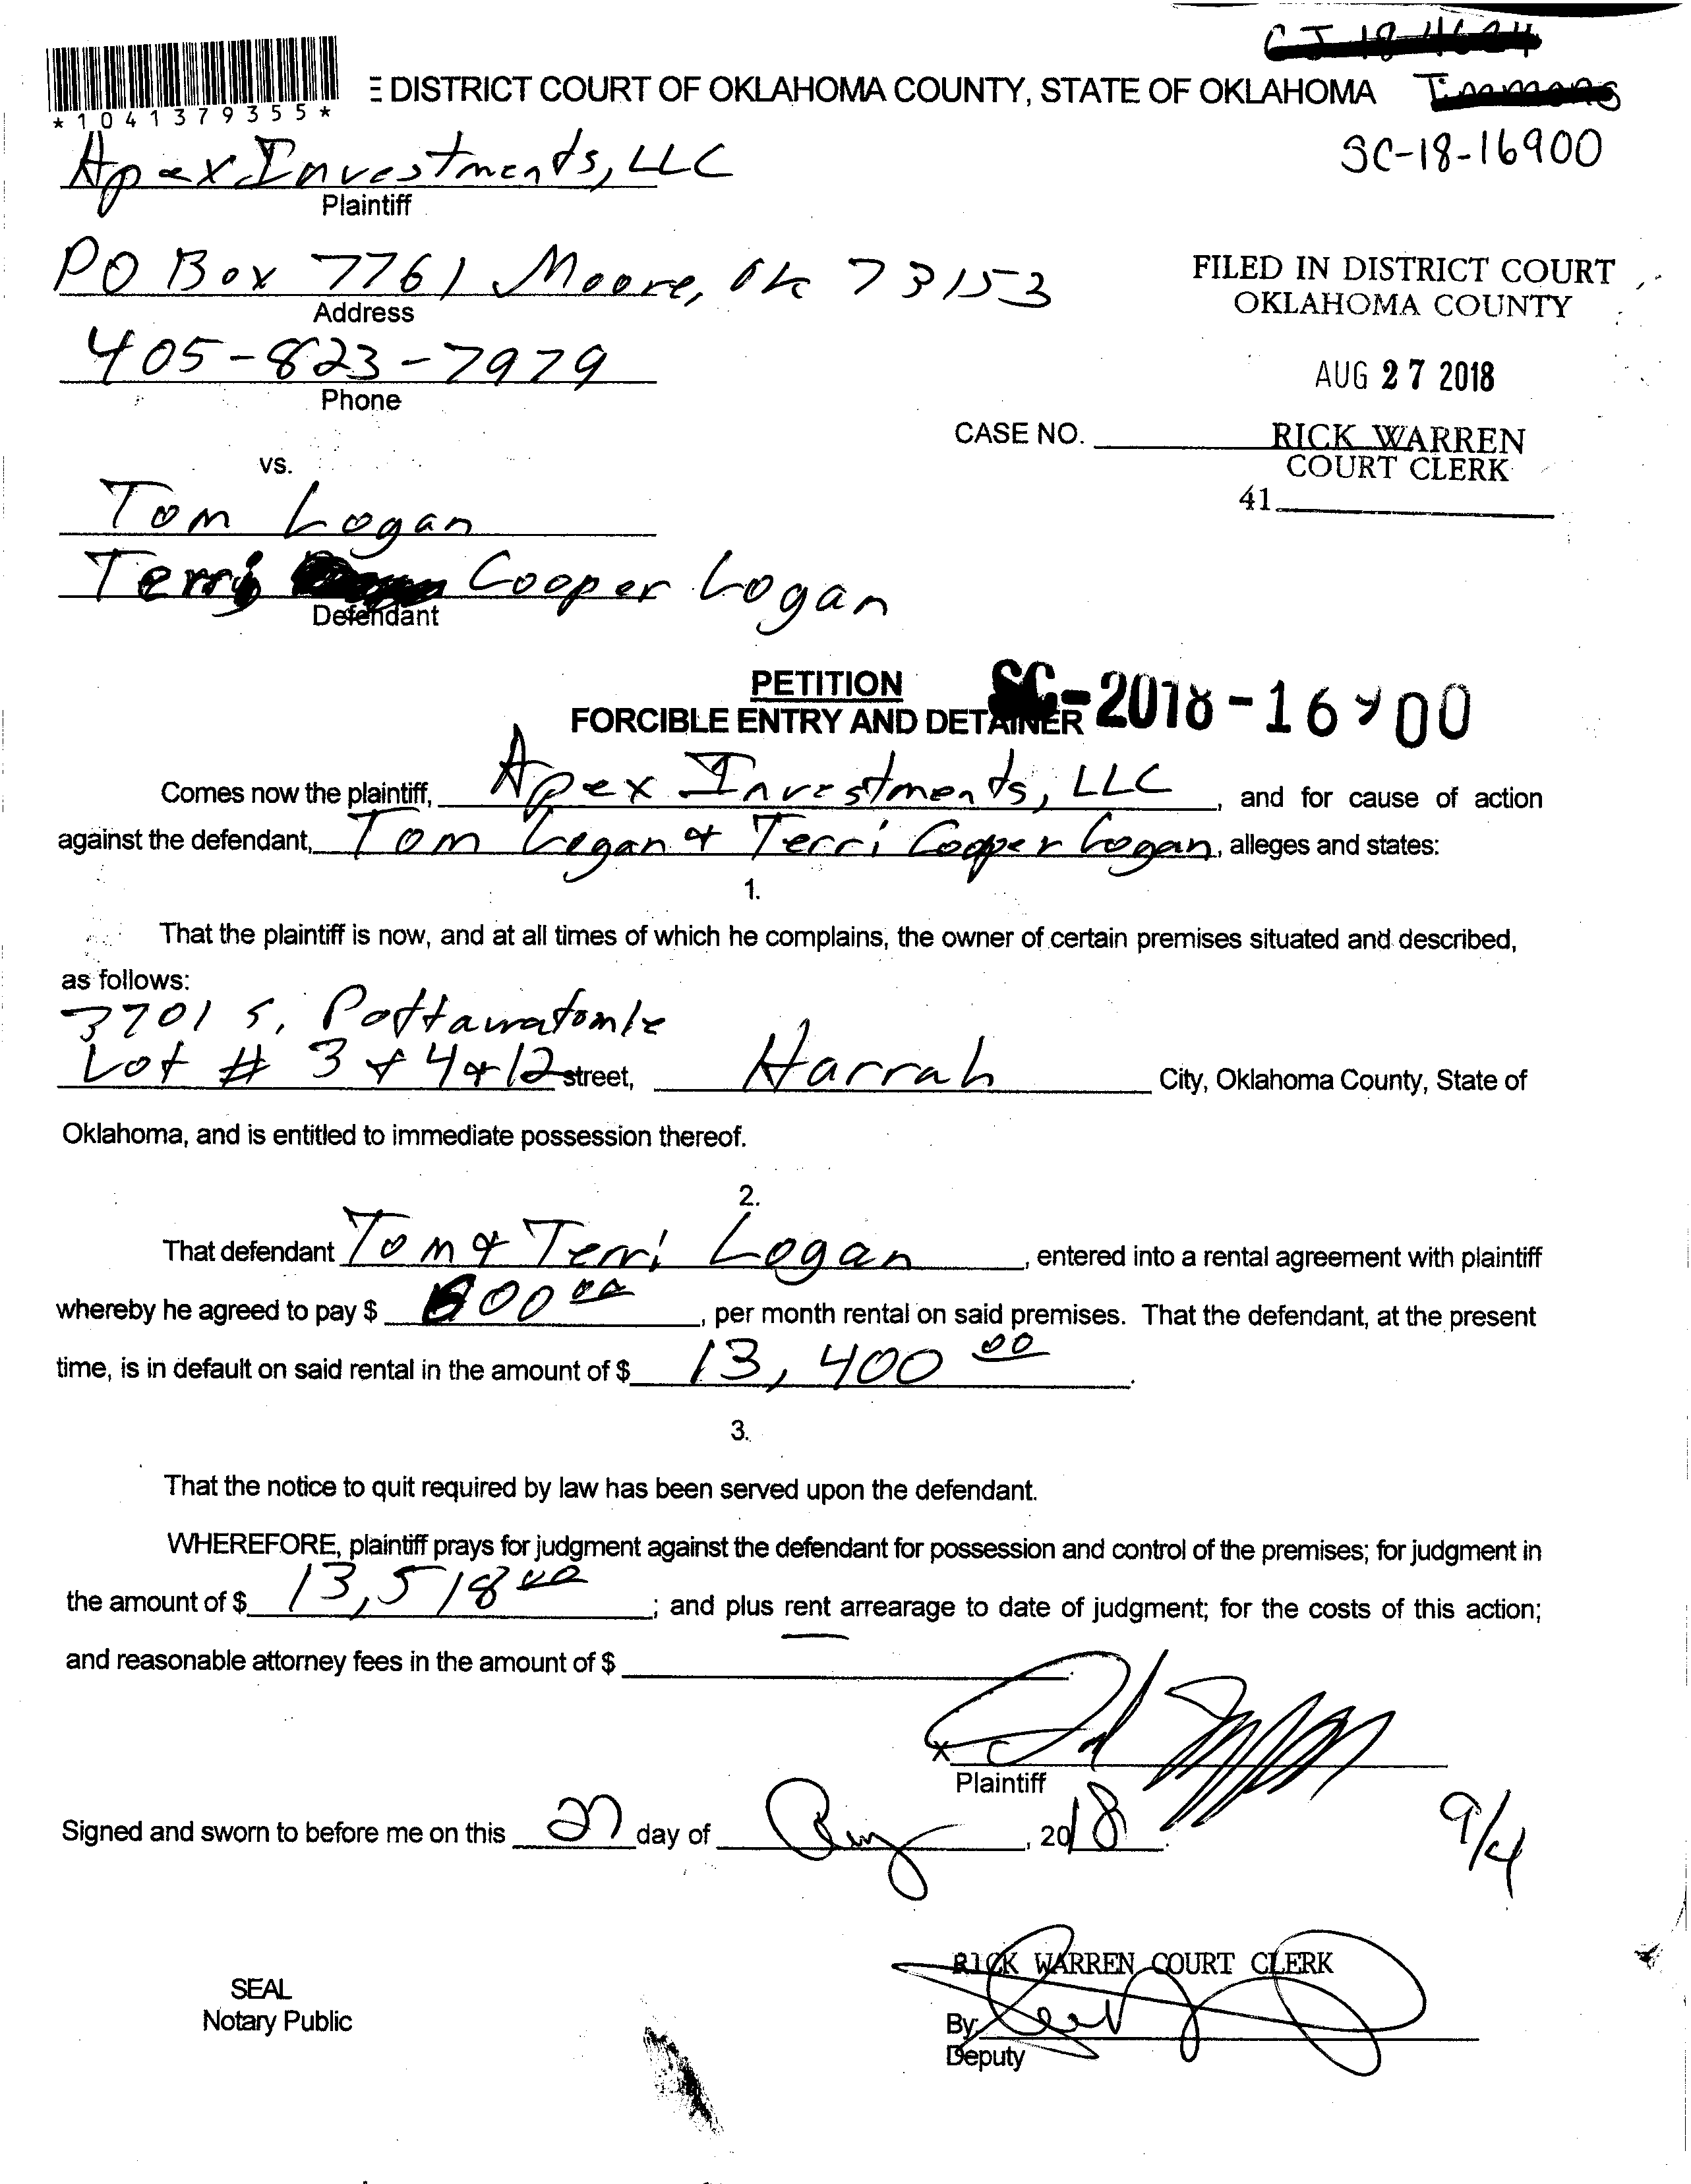 *1041379355*
DISTRICT COURT OF OKLAHOMA COUNTY, STATE OF OKLAHOMA
SC-18-16900
Apex Investments, LLC
Plaintiff
PO Box 7761 Moore, Ok 73153
Address
FILED IN DISTRICT COURT
OKLAHOMA COUNTY
405-823-7979
Phone
AUG 27 2018
CASE NO.
RICK WARREN
COURT CLERK
41
vs.
Tom Logan
Terri Cooper Logan
Defendant
PETITION
FORCIBLE ENTRY AND DETAINER
SC-2018-16900
Comes now the plaintiff, Apex Investments, LLC, and for cause of action
against the defendant, Tom Logan & Terri Cooper Logan, alleges and states:
1.
That the plaintiff is now, and at all times of which he complains, the owner of certain premises situated and described,
as follows:
3701 S. Pottawatomie
Lot # 3 & 4 & 12 street, Harrah City, Oklahoma County, State of
Oklahoma, and is entitled to immediate possession thereof.
2.
That defendant Tom & Terri Logan, entered into a rental agreement with plaintiff
whereby he agreed to pay $ , per month rental on said premises. That the defendant, at the present
time, is in default on said rental in the amount of $ 13,400 00.
3.
That the notice to quit required by law has been served upon the defendant.
WHEREFORE, plaintiff prays for judgment against the defendant for possession and control of the premises; for judgment in
the amount of $ 13,518 00; and plus rent arrearage to date of judgment; for the costs of this action;
and reasonable attorney fees in the amount of $
x
Plaintiff
Signed and sworn to before me on this 27 day of Aug, 2018.
9/4
RICK WARREN COURT CLERK
SEAL
Notary Public
By:
Deputy